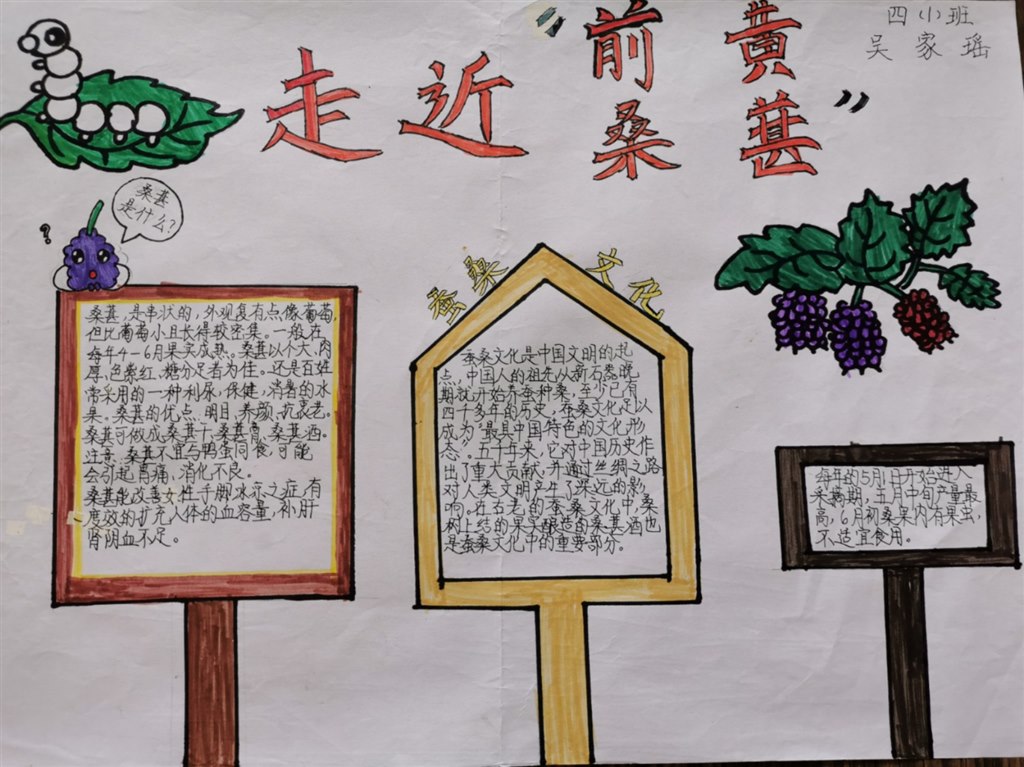 四小班
吴家瑶
走近"黄前桑葚"
桑葚
是什么?
?
桑葚,是串状的,外观复有点像葡萄,
但比葡萄小且长得较密集。一般在
每年4-6月果实成熟。桑葚以个大、肉
厚、色紫红、糖分足者为佳。还是百姓
常采用的一种利尿,保健,消暑的水
果。桑葚的优点,明目,养颜,抗衰老。
桑葚可做成桑葚干、桑葚膏、桑葚酒。
注意:桑葚不宜与鸭蛋同食,可能
会引起胃痛、消化不良。
桑葚能改善女性手脚冰凉之症,有
度效的扩充人体的血容量,补肝
肾阴血不足。
蚕桑文化
蚕桑文化是中国文明的起
点,中国人的祖先从新石器晚
期就开始养蚕种桑,至少已有
四千多年的历史,蚕桑文化足以
成为"最具中国特色的文化形
态。五千年来,它对中国历史作
出了重大贡献,并通过丝绸之路
对人类文明产生了深远的影
响。在古老的蚕桑文化中,桑
树上结的果实酿造的桑葚酒也
是蚕桑文化中的重要部分。
每年的5月1日开始进入
采摘期,五月中旬产量最
高,6月初桑果内有果虫,
不适宜食用。